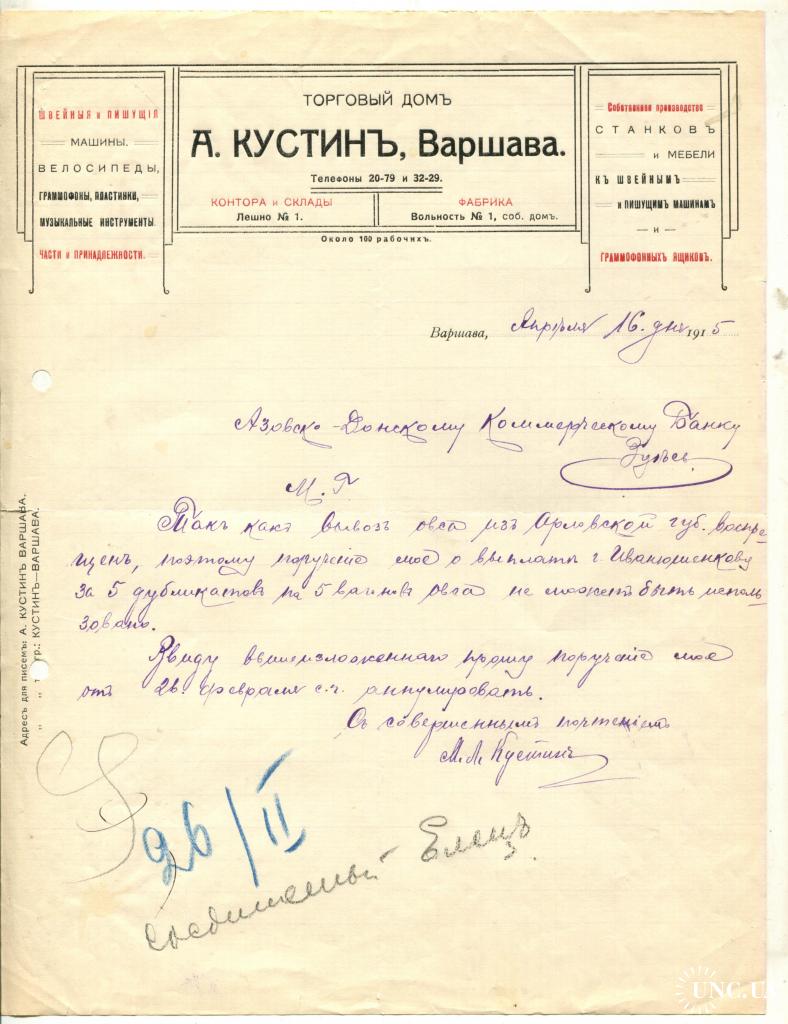 ШВЕЙНЫЯ и ПИШУЩІЯ
МАШИНЫ.
ВЕЛОСИПЕДЫ,
ГРАММОФОНЫ, ПЛАСТИНКИ,
МУЗЫКАЛЬНЫЕ ИНСТРУМЕНТЫ.
ЧАСТИ и ПРИНАДЛЕЖНОСТИ.
ТОРГОВЫЙ ДОМЪ
А. КУСТИНЪ, Варшава.
Телефоны 20-79 и 32-29.
КОНТОРА и СКЛАДЫ
Лешно № 1.
ФАБРИКА
Вольность № 1, соб. домъ.
Около 100 рабочихъ.
Собственное производство
СТАНКОВЪ
и МЕБЕЛИ
КЪ ШВЕЙНЫМЪ
и ПИШУЩИМЪ МАШИНАМЪ
— и —
ГРАММОФОННЫХЪ ЯЩИКОВЪ.
Варшава, Апрѣля 16 дня 1915
Азовско-Донскому Коммерческому Банку
Здѣсь
М. Г.
Такъ какъ вывозъ овса изъ Орловской губ. воспре-
щенъ, поэтому порученіе мое о выплатѣ г. Иванюшенкову
за 5 дубликатовъ на 5 вагоновъ овса не можетъ быть исполь-
зовано.
Ввиду вышеизложеннаго прошу порученіе мое
отъ 26 февраля с.г. аннулировать.
Съ совершеннымъ почтеніемъ
М.Л. Кустинъ
Адресъ для писемъ: А. КУСТИНЪ ВАРШАВА.
„ „ гр.: КУСТИНЪ—ВАРШАВА.
26/II
Елецъ.
UNC.UA